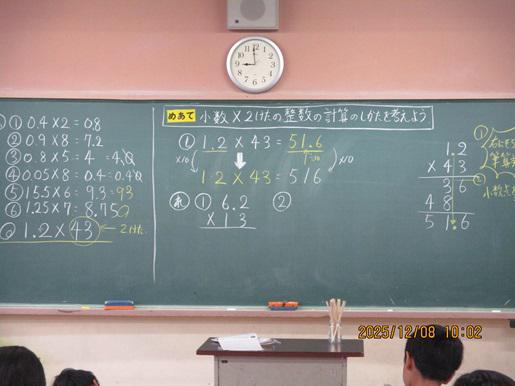 ① 0.4×2=0.8
② 0.9×8=7.2
③ 0.8×5=4=4.0
④ 0.05×8=0.4=0.40
⑤ 15.5×6=9.3=93
⑥ 1.25×7=8.750
1.2×43 ←2けた
めあて 小数×2けたの整数の計算のしかたを考えよう
① 1.2×43=51.6
×10 ×10
12×43=516
れ ① 6.2
×13
②
1.2
×43
36
48
51.6
①
②
小数点
2025/12/08 10:02